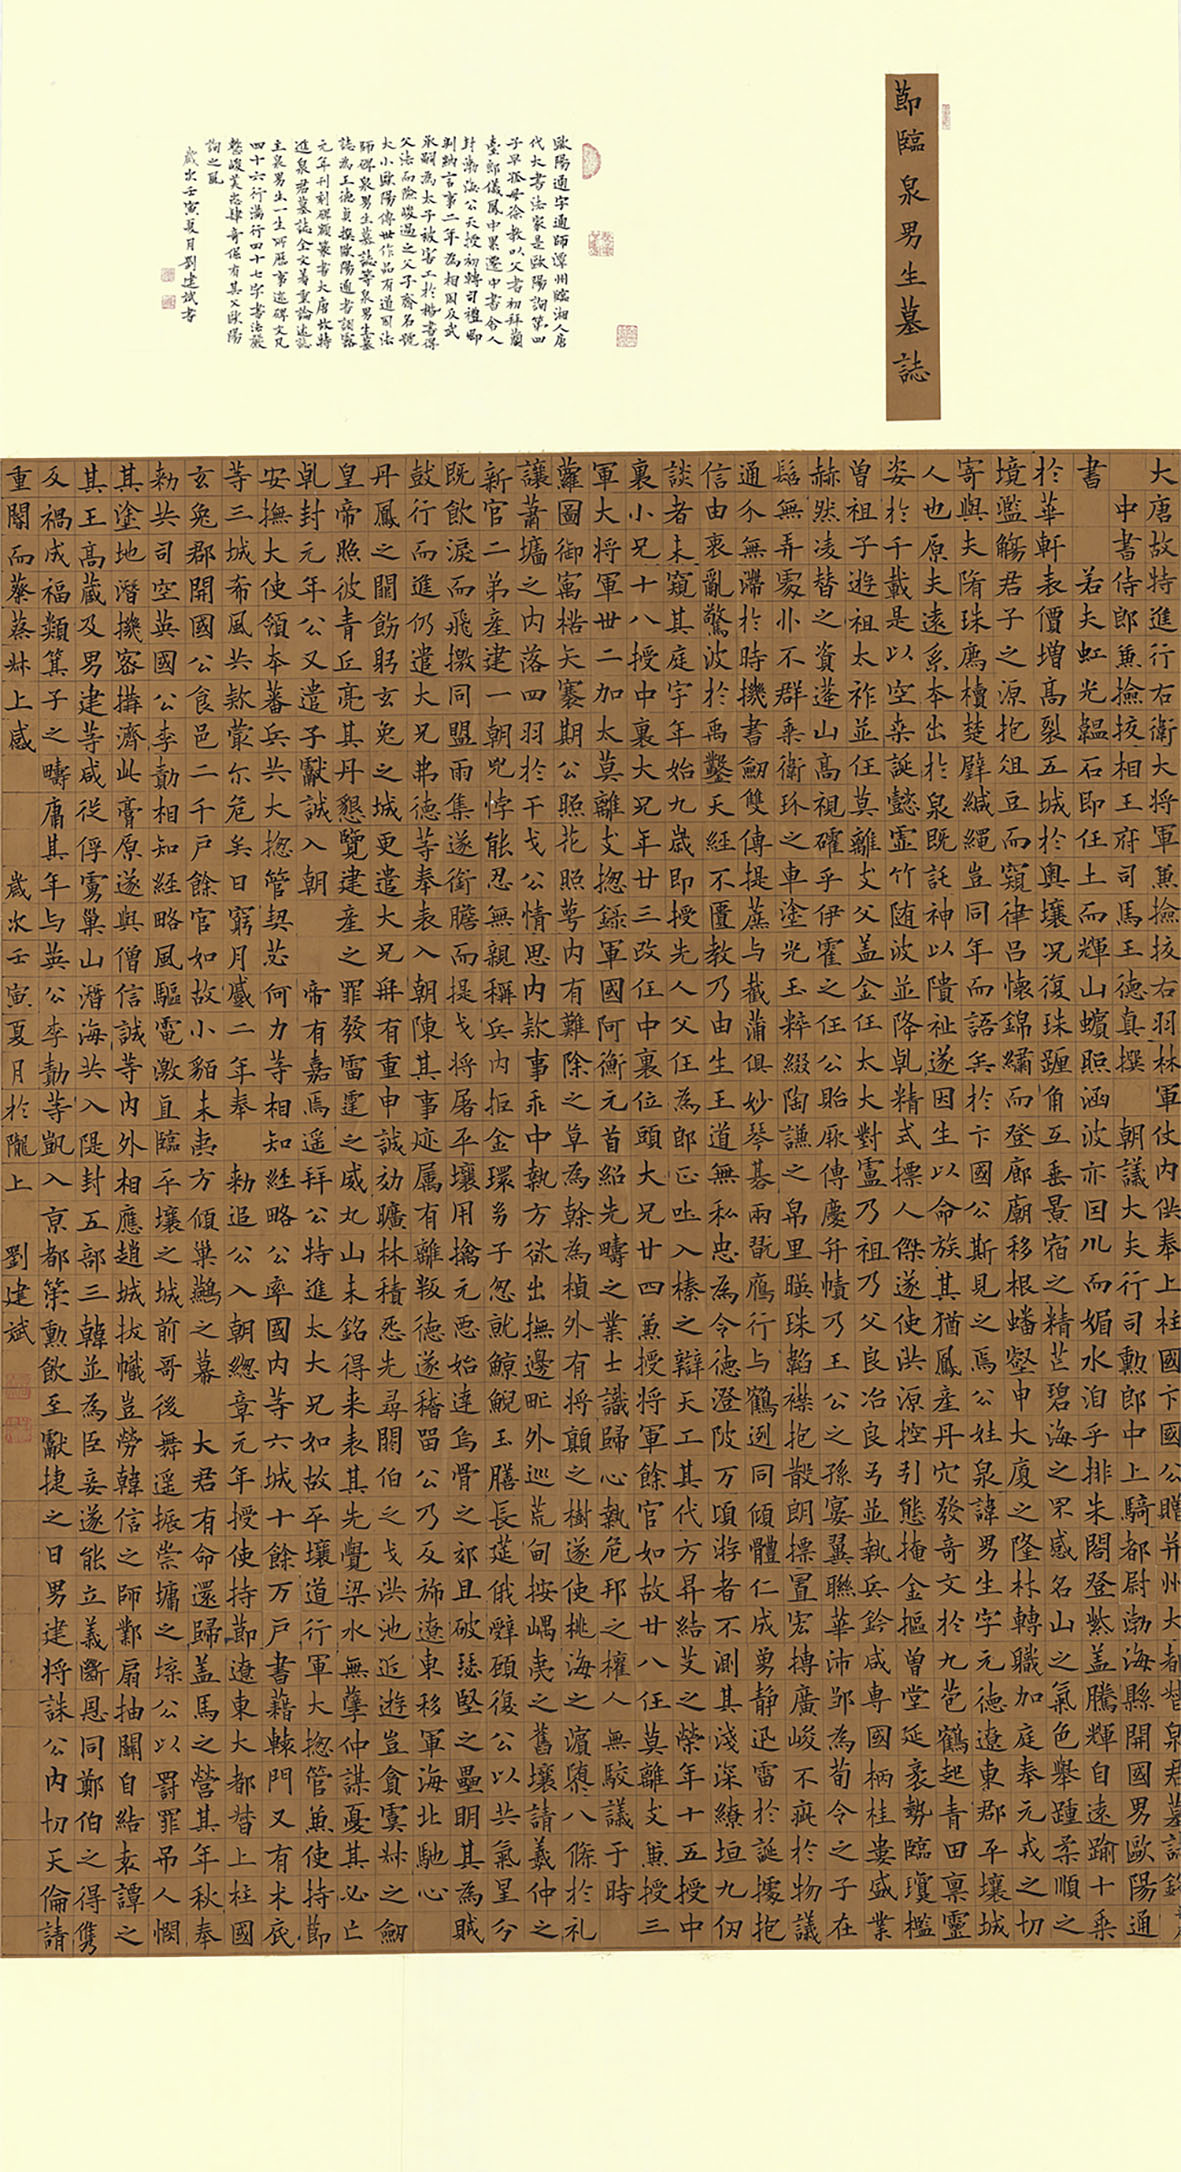 莭臨泉男生墓誌
歐陽通字通師潭州臨湘人唐
代大書法家是歐陽詢第四
子早孤母徐教以父書初拜蘭
臺郎儀鳳中累遷中書舍人
封渤海公天授初轉司禮卿
判納言事二年為相因反武
承嗣為太子被害工於楷書得
父法而險峻過之父子齊名號
大小歐陽傳世作品有道因法
師碑泉男生墓誌等泉男生墓
誌為王德真撰歐陽通書調露
元年刊刻碑額篆書大唐故特
進泉君墓誌全文着重論述誌
主泉男生一生所歷事迹碑文凡
四十六行滿行四十七字書法嚴
整峻美恣肆奇保有其父歐陽
詢之風
歲次壬寅夏月劉建斌書
大唐故特進行右衛大將軍兼撿挍右羽林軍仗內供奉上柱國卞國公贈并州大都督泉君墓誌銘
中書侍郎兼撿挍相王府司馬王德真撰 朝議大夫行司勳郎中上騎都尉渤海縣開國男歐陽通
書 若夫虹光韞石即任土而輝山蠙照涵波亦因川而媚水洎乎排朱閣登紫蓋騰輝自遠踰十乘
於華軒表價增高裂五城於奧壤況復珠躔角互垂景宿之精芒碧海之罘感名山之氣色舉踵柔順之
境濫觴君子之源抱俎豆而窺律呂懷錦繡而登廊廟移根蟠壑申大廈之隆林轉職加庭奉元戎之切
寄與夫隋珠薦櫝楚璧緘繩豈同年而語矣於卞國公斯見之焉公姓泉諱男生字元德遼東郡平壤城
人也原夫遠系本出於泉既託神以隤祉遂因生以命族其猶鳳產丹穴發奇文於九苞鶴起青田稟靈
姿於千載是以空桒誕懿虛竹隨波並降乹精式摽人傑遂使洪源控引態掩金樞曾堂延袤勢臨瓊檻
曾祖子遊祖太祚並任莫離支父盖金任太大對盧乃祖乃父良冶良弓並執兵鈐咸専國柄桂婁盛業
赫然淩替之資蓬山高視確乎伊霍之任公貽厥傳慶弁幘乃王公之孫宴翼聯華沛鄒為荀令之子在
髫無弄處丱不群乗衛玠之車塗光玉粹綴陶謙之帛里暎珠韜襟抱散朗摽置宏博廣峻不疵於物議
通介無滯於時機書劒雙傳提蔗与截蒲俱妙琴碁兩翫鴈行与鶴迾同傾體仁成勇静迅雷於誕據抱
信由衷亂驚波於禹鑿天經不匱教乃由生王道無私忠為令德澄陂万頃游者不測其淺深繚垣九仞
談者未窺其庭宇年始九歲即授先人父任為郎正吐入榛之辯天工其代方昇結艾之榮年十五授中
裏小兄十八授中裏大兄年廿三改任中裏位頭大兄廿四兼授將軍餘官如故廿八任莫離支兼授三
軍大將軍卅二加太莫離支揔錄軍國阿衡元首紹先疇之業士識歸心執危邦之權人無駮議于時
蘿圖御寓楛矢褰期公照花照萼內有難除之草為幹為楨外有將顛之樹遂使桃海之濱隳八條於礼
讓蕭墻之內落四羽於干戈公情思內款事乖中執方欲出撫邊甿外巡荒甸按嵎夷之舊壤請羲仲之
新官二弟產建一朝兇悖能忍無親稱兵內拒金環㓜子忽就鯨鯢玉膳長筵俄辭顧復公以共氣星分
既飲淚而飛檄同盟雨集遂銜膽而提戈將屠平壤用擒元惡始達烏骨之郊且破瑟堅之壘明其為賊
鼓行而進仍遣大兄弗德等奉表入朝陳其事迹属有離叛德遂稽留公乃反旆遼東移軍海北馳心
丹鳳之闕飭躬玄兔之城更遣大兄冉有重申誠効曠林積惎先尋閼伯之戈洪池近遊豈貪虞叔之劒
皇帝照彼青丘亮其丹懇覽建產之罪發雷霆之威丸山未銘得来表其先覺梁水無孽仲謀憂其必亡
乹封元年公又遣子獻誠入朝 帝有嘉焉遥拜公特進太大兄如故平壤道行軍大揔管兼使持莭
安撫大使領本蕃兵共大揔管契苾何力等相知經略公率國內等六城十餘万戶書籍轅門又有木厎
等三城希風共款蕞尒危矣日窮月蹙二年奉 勑追公入朝緫章元年授使持莭遼東大都督上柱國
玄兔郡開國公食邑二千戶餘官如故小貊未夷方傾巢鷰之幕 大君有命還歸盖馬之營其年秋奉
勑共司空英國公李勣相知經略風驅電激直臨平壤之城前哥後舞遥振崇墉之堞公以罸罪吊人憫
其塗地潛機密搆濟此膏原遂與僧信誠等內外相應趙城拔幟豈勞韓信之師鄴扇抽關自結袁譚之
其王高藏及男建等咸從俘虜巢山潛海共入隄封五部三韓並為臣妾遂能立義斷恩同鄭伯之得雋
反禍成福類箕子之疇庸其年与英公李勣等凱入京都策勳飲至獻捷之日男建將誅公內切天倫請
重閽而蔡蔡叔上感 歲次壬寅夏月於隴上 劉建斌